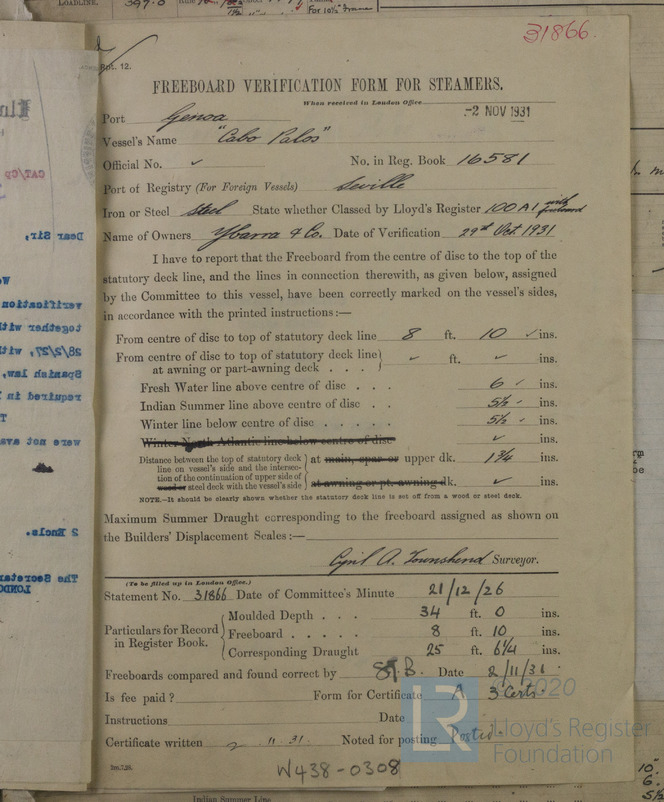 LOADLINE.
For 10½"
31866.
Rpt. 12.
FREEBOARD VERIFICATION FORM FOR STEAMERS.
When received in London Office
-2 NOV 1931
Port Genoa
Vessel's Name "Cabo Palos"
Official No. ✓ No. in Reg. Book 16581
Port of Registry (For Foreign Vessels) Seville
Iron or Steel Steel State whether Classed by Lloyd's Register 100 A1 with freeboard
Name of Owners Ybarra & Co. Date of Verification 29th Oct. 1931
I have to report that the Freeboard from the centre of disc to the top of the
statutory deck line, and the lines in connection therewith, as given below, assigned
by the Committee to this vessel, have been correctly marked on the vessel's sides,
in accordance with the printed instructions:—
From centre of disc to top of statutory deck line 8 ft. 10 ✓ ins.
From centre of disc to top of statutory deck line
at awning or part-awning deck . . . ✓ ft. ✓ ins.
Fresh Water line above centre of disc . . . 6 ✓ ins.
Indian Summer line above centre of disc . . 5½ ✓ ins.
Winter line below centre of disc . . . . 5½ ✓ ins.
Winter North Atlantic line below centre of disc ✓ ins.
Distance between the top of statutory deck
line on vessel's side and the intersec-
tion of the continuation of upper side of
wood or steel deck with the vessel's side
at main, spar or upper dk. 1¾ ins.
at awning or pt. awning dk. ✓ ins.
NOTE.—It should be clearly shown whether the statutory deck line is set off from a wood or steel deck.
Maximum Summer Draught corresponding to the freeboard assigned as shown on
the Builders' Displacement Scales:—
Cyril A. Townshend Surveyor.
(To be filled up in London Office.)
Statement No. 31866 Date of Committee's Minute 21/12/26
Particulars for Record
in Register Book.
Moulded Depth . . . 34 ft. 0 ins.
Freeboard . . . . . 8 ft. 10 ins.
Corresponding Draught 25 ft. 6¼ ins.
Freeboards compared and found correct by Date 2/11/31
Is fee paid? Form for Certificate A 3 Certs.
Instructions Date
Certificate written 2 11.31 Noted for posting Posted
W438-0308
© 2020
LR
Lloyd's Register
Foundation
Dear Sir,
verification
together with
28/2/27, with
Spanish law,
required in
were not ava
2 Encls.
The Secretar
LONDO
Indian Summer Line
10"
6"
5½